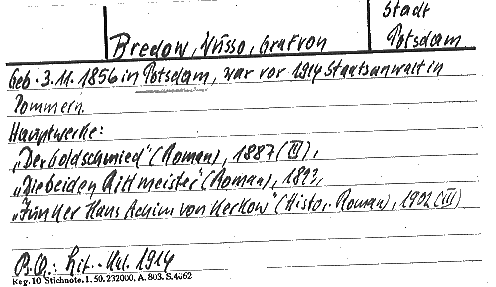 Stadt
Bredow, Wusso, Graf von
Potsdam
Geb. 3.11.1856 in Potsdam, war vor 1914 Staatsanwalt in
Pommern.
Hauptwerke:
„Der Goldschmied" (Roman), 1887 (III),
„Die beiden Rittmeister" (Roman), 1893,
„Junker Hans Achim von Kerkow" (Histor. Roman), 1902 (III)
B.Q.: Lit.-Kal. 1914
Reg. 10 Stichnote. 1. 50. 232000. A. 803. S. 4662